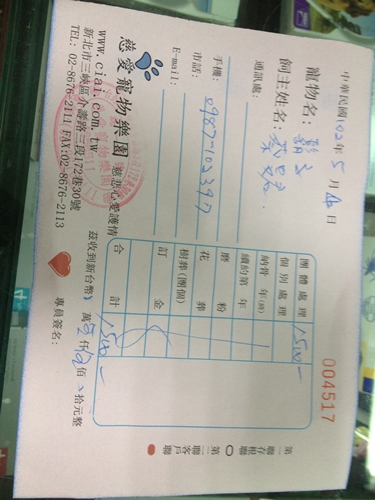 慈愛寵物樂園 慈悲心愛護情
www.ciai.com.tw
新北市三峽區介壽路三段172巷30號
TEL: 02-8676-2111 FAX:02-8676-2113
中華民國 102 年 5 月 4 日
寵物名：
飼主姓名：
通訊處：
手機：0987-102397
市話：
E-mail：
004517
團體處理
個別處理
1500-
納骨 年(時)
續約第 年
磨粉
花葬
樹葬(團個)
訂金
合計
1500-
茲收到新台幣： 萬 壹 仟 伍 佰 拾元整
專員簽名：
第一聯存根聯
第二聯客戶聯